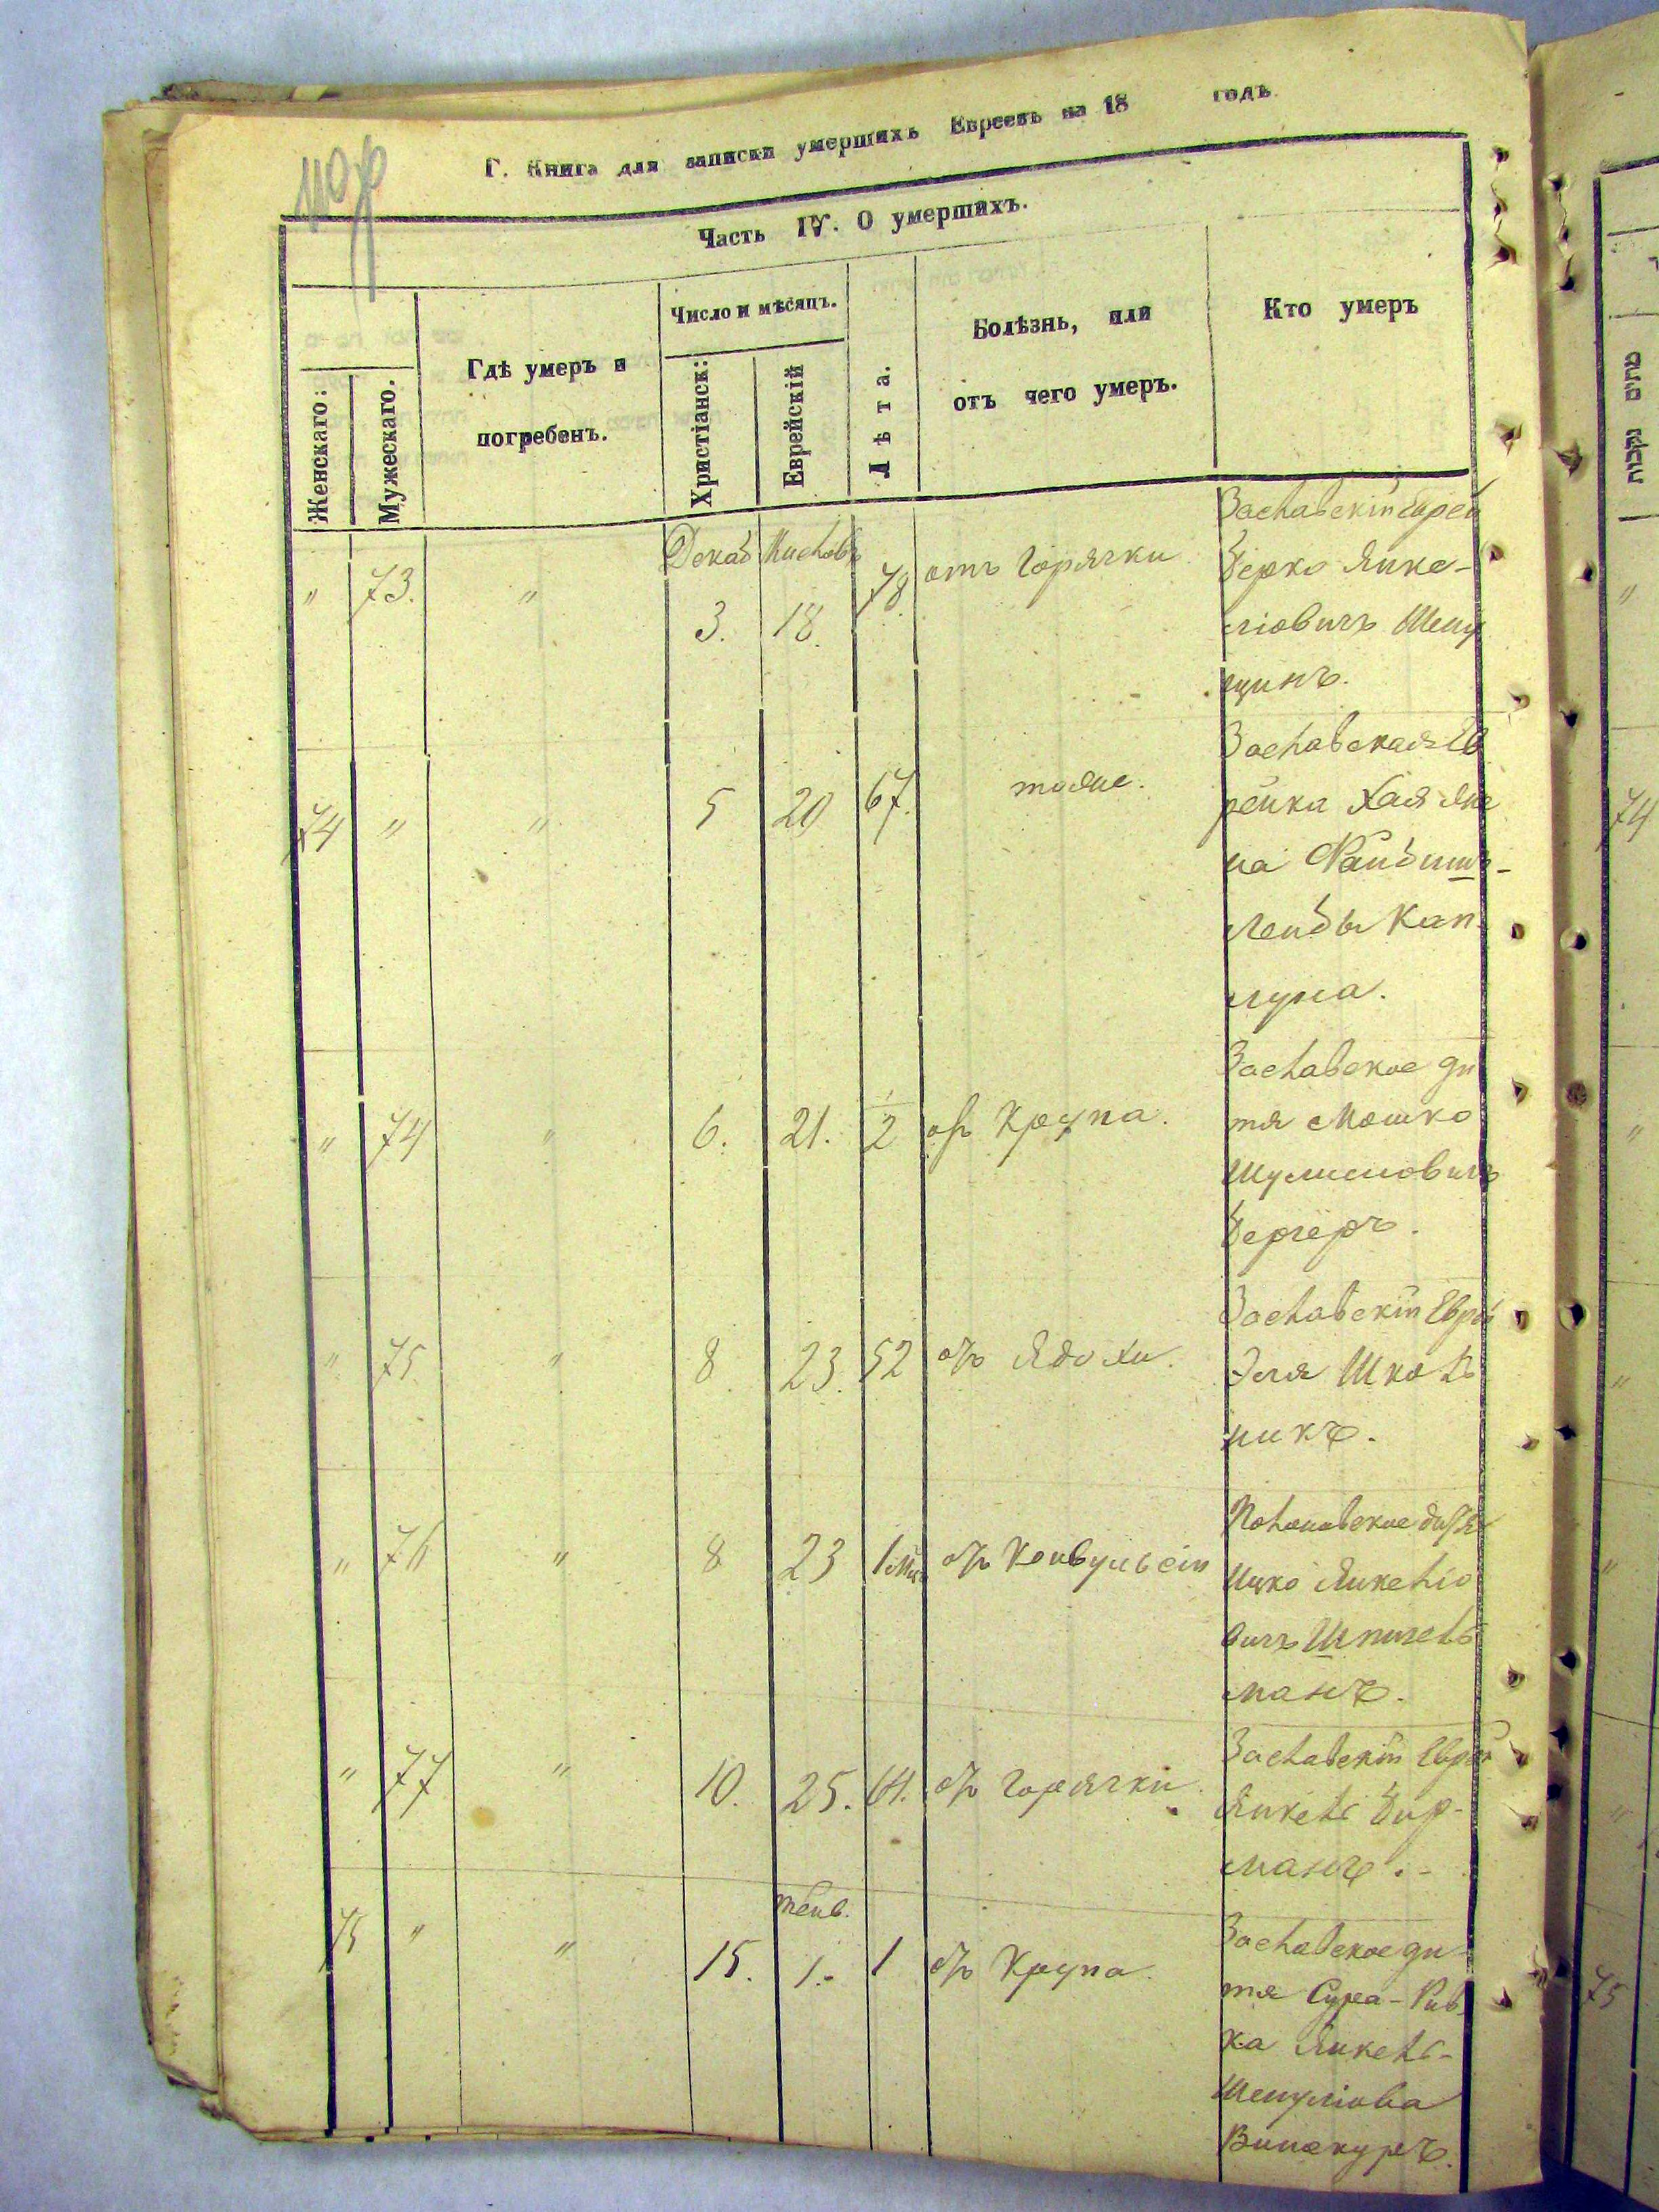 Г. Книга для записки умершихъ Евреевъ на 18 годъ
Часть IV. О умершихъ.
Женскаго:
Мужескаго.
Гдѣ умеръ и
погребенъ.
Число и мѣсяцъ.
Христіанск:
Еврейскій
Лѣта.
Болѣзнь, или
отъ чего умеръ.
Кто умеръ
" 73. " Декаб 3. Кислевъ 18. 78 отъ Горячки Заславскій Еврей
Берко Янке-
ліовичъ
цинъ.
74 " " 5 20 67. тоже. Заславская Ев
рейка Хая
на
Лейбы Кап
луна.
" 74 " 6. 21. 1/2 отъ Крупа. Заславское ди
тя Мошко
Шулимовичъ
Бергеръ.
" 75. " 8. 23. 52 отъ Заславскій Еврей
Эля Школь
никъ.
" 76 " 8 23 1 мѣс отъ Конвульсіи дитя
Ицко Янкеліо
вичъ Шпигель
манъ.
" 77 " 10. 25. 64. отъ Горячки Заславскій Еврей
Янкель Бир-
манъ.-
75 " " 15. тейв. 1.- 1 отъ Крупа. Заславское ди-
тя Сура-Рив-
ка Янкель-
Шмуліова
Винокуръ.
מתים נקבות
74
75